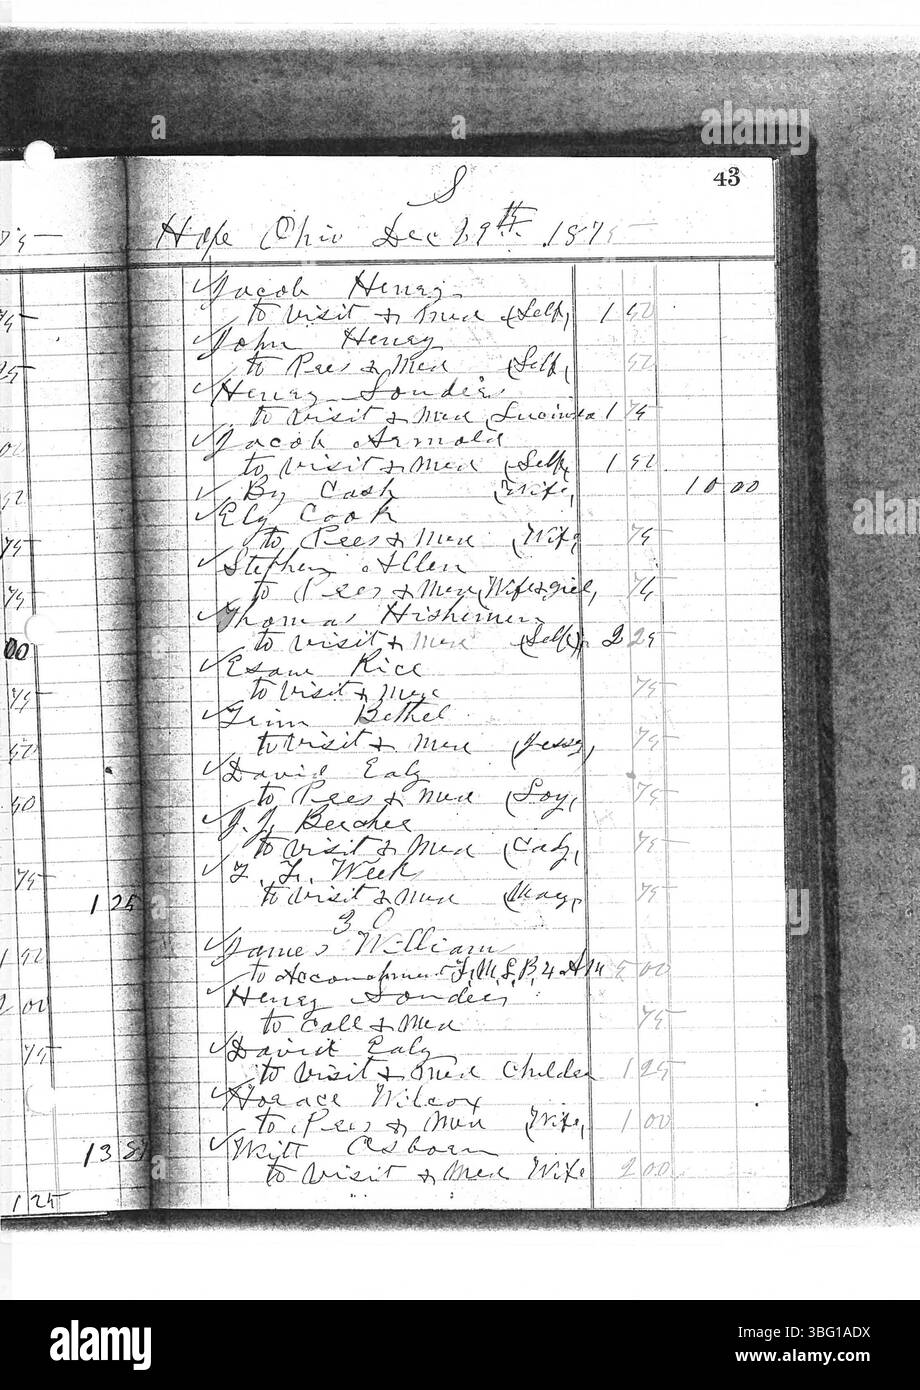 43
S
Hope Ohio Dec 29th 1875
Jacob Henry
to visit & Med (Self, 1 50
John Henry
to Pres & Med (Self, 50
Henry Sonders
to visit & Med Lucinda 1 75
Jacob Arnold
to visit & Med (Self, 1 50
By Cash (Wife, 10 00
Ely Cook
to Pres & Med (Wife 75
Stephen Allen
to Pres & Med (Wife & girl, 75
Thomas Hishimer
to visit & Med (Self), 2 25
Esaw Rice
to visit & Med 75
Bethel
to visit & Med (Jessy, 75
David Ealy
to Pres & Med (Loy, 75
J. J. Beecher
to visit & Med (Cady, 75
Week
to visit & Med (May, 75
30
James William
to Accouchment 5 00
Henry Sonders
to call & Med 75
David Ealy
to visit & Med Childen 1 25
Horace Wilcox
to Pres & Med (Wife, 1 00
Witt Osborn
to visit & Med Wife 2 00
75
75
25
00
50
75
75
00
75
50
50
75
1 25
1 50
2 00
75
13 87
1 25
alamy
Image ID: 3BG1ADX
www.alamy.com